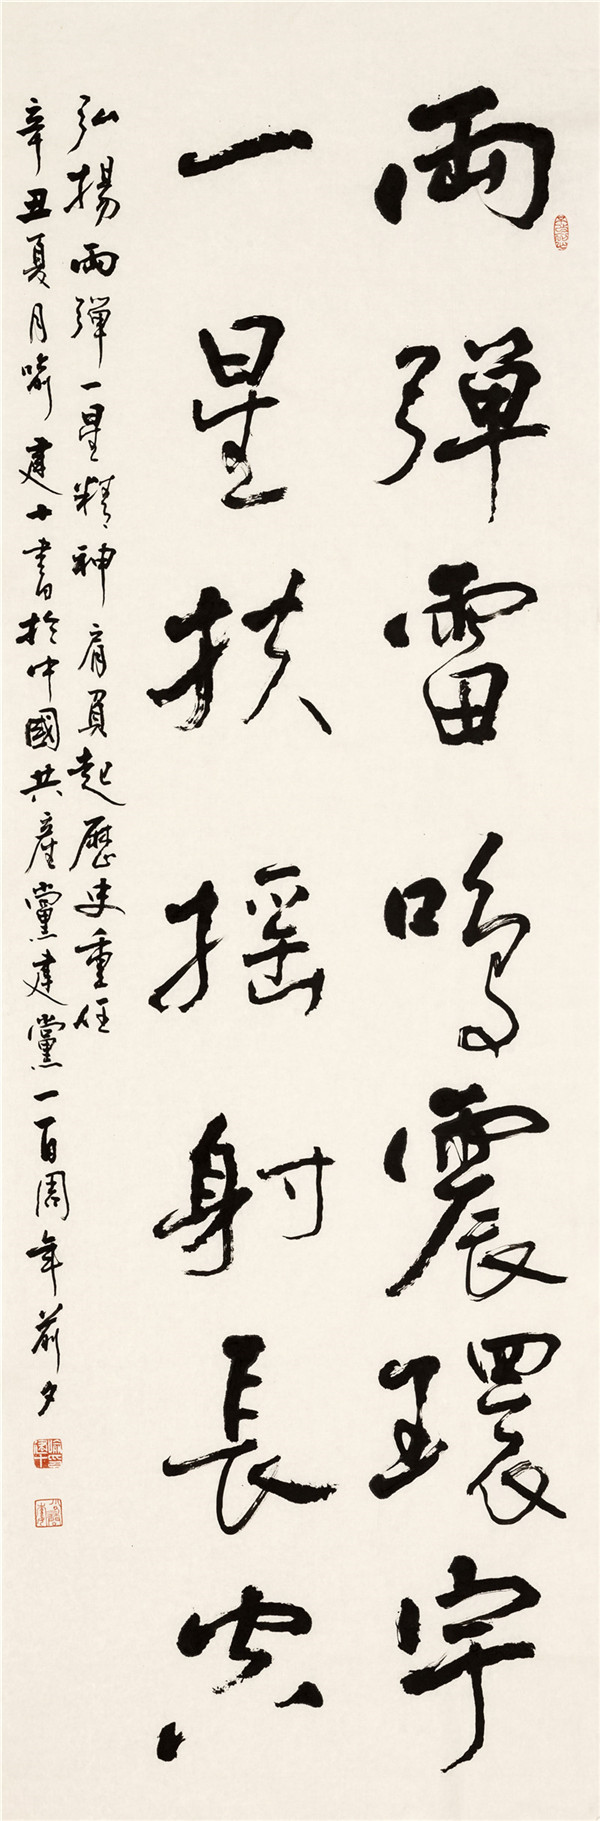 兩彈雷鳴震環宇
一星扶搖射長空
弘揚兩彈一星精神肩負起歷史重任
辛丑夏月喻建十書於中國共產黨建黨一百周年前夕